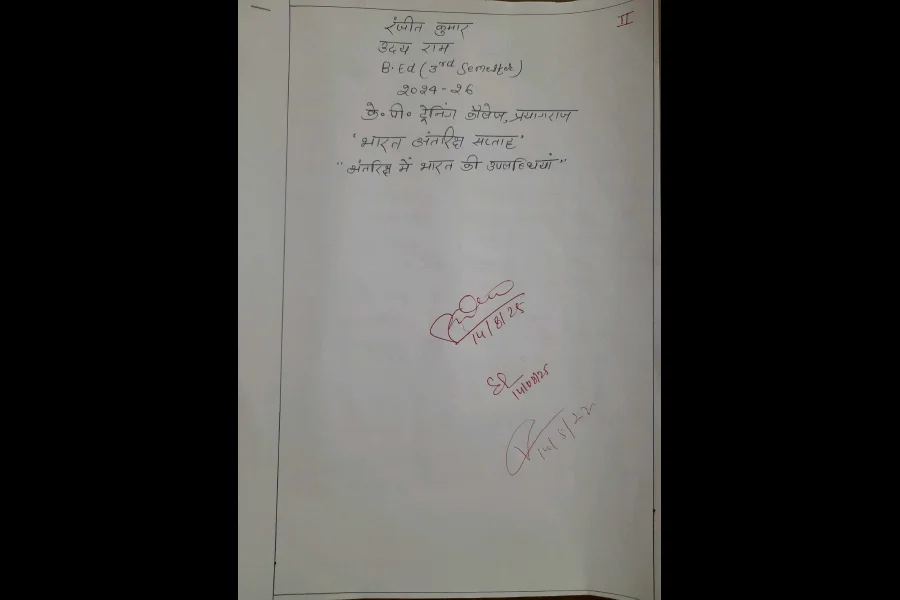 II
रंजीत कुमार
उदय राम
B.Ed (3rd Semester)
2024-26
के० पी० ट्रेनिंग कॉलेज, प्रयागराज
'भारत अंतरिक्ष सप्ताह'
"अंतरिक्ष में भारत की उपलब्धियां"
14/8/25
14/08/25
14/8/25